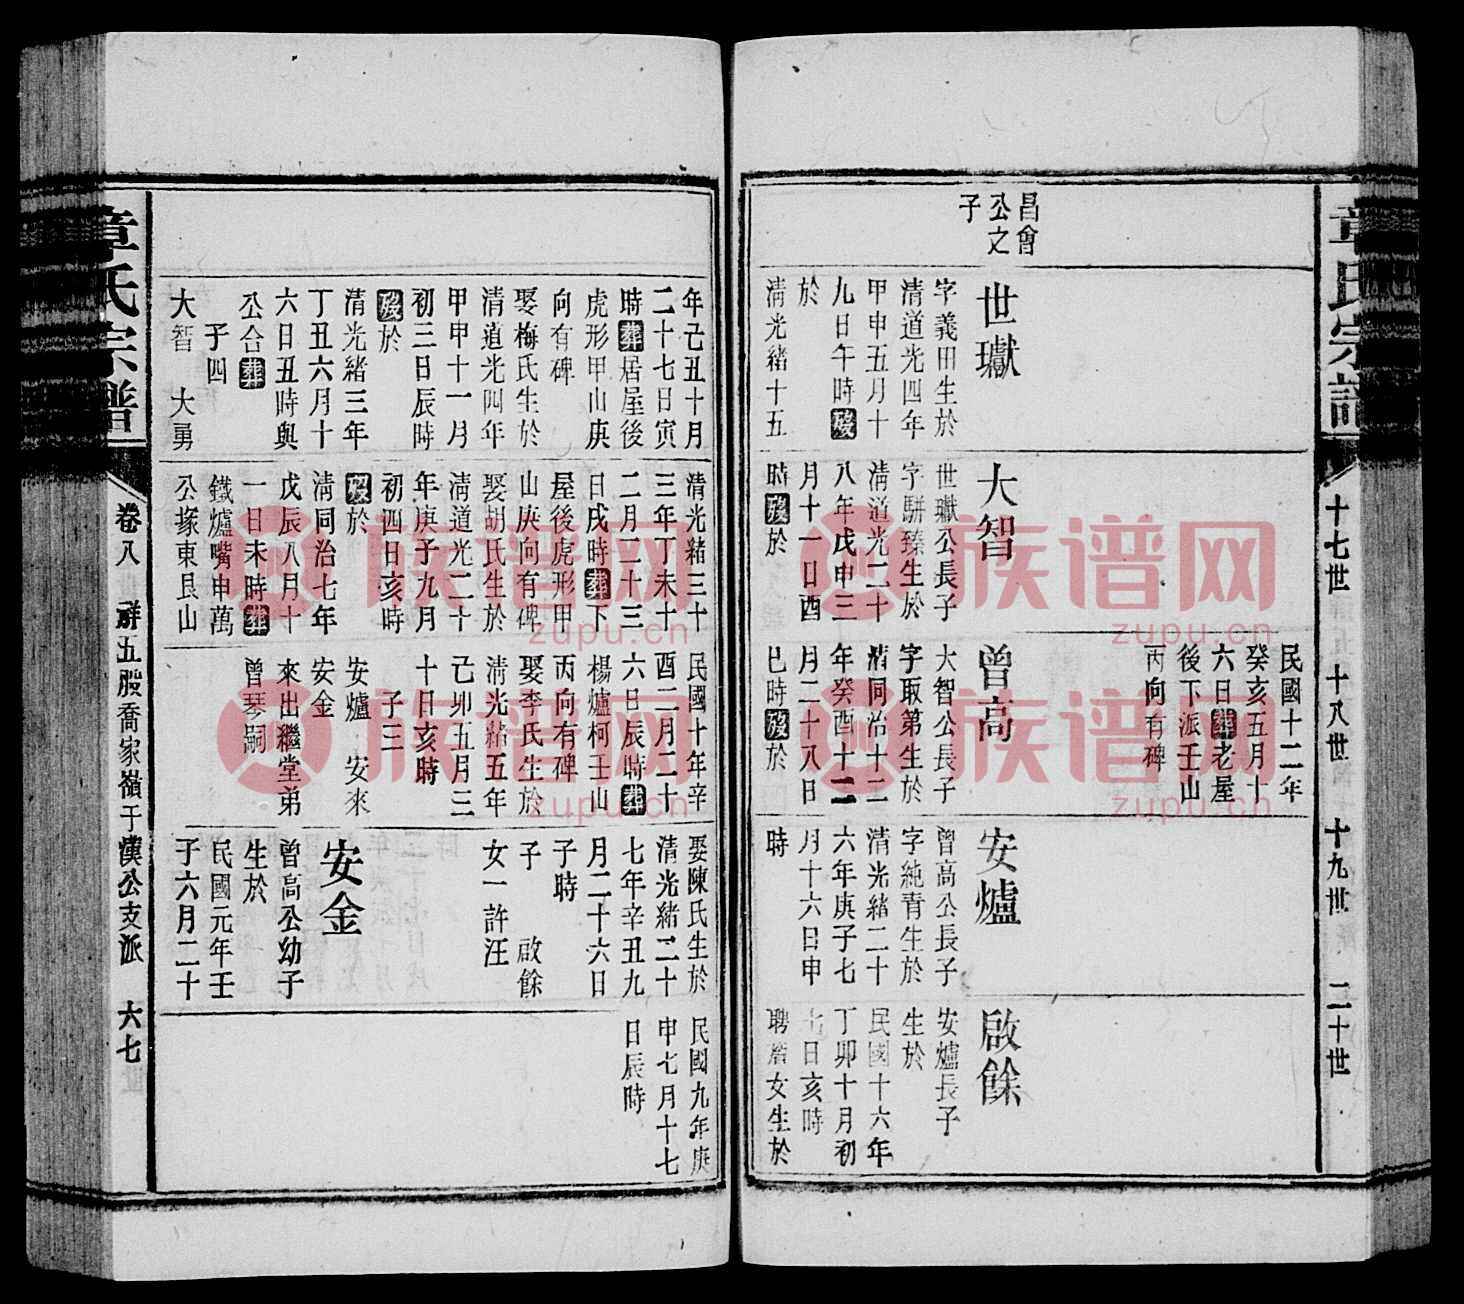 章氏宗譜
十七世
十八世
十九世
二十世
昌會
公之
子
世瓛
字義田生於
清道光四年
甲申五月十
九日午時歿
於
清光緒十五
年己丑十月
二十七日寅
時葬居屋後
虎形甲山庚
向有碑
娶梅氏生於
清道光四年
甲申十一月
初三日辰時
歿於
清光緒三年
丁丑六月十
六日丑時與
公合葬
子四
大智 大勇
大智
世瓛公長子
字駢臻生於
清道光二十
八年戊申三
月十一日酉
時歿於
清光緒三十
三年丁未十
二月二十三
日戌時葬下
屋後虎形甲
山庚向有碑
娶胡氏生於
清道光二十
年庚子九月
初四日亥時
歿於
清同治七年
戊辰八月十
一日未時葬
鐵爐嘴申萬
公塚東艮山
民國十二年
癸亥五月十
六日葬老屋
後下派壬山
丙向有碑
曾高
大智公長子
字取第生於
清同治十二
年癸酉十二
月二十八日
巳時歿於
民國十年辛
酉二月二十
六日辰時葬
楊爐柯壬山
丙向有碑
娶李氏生於
清光緒五年
己卯五月三
十日亥時
子三
安爐 安來
安金
來出繼堂弟
曾琴嗣
安爐
曾高公長子
字純青生於
清光緒二十
六年庚子七
月十六日申
時
娶陳氏生於
清光緒二十
七年辛丑九
月二十六日
子時
子 啟餘
女一許汪
安金
曾高公幼子
生於
民國元年壬
子六月二十
啟餘
安爐長子
生於
民國十六年
丁卯十月初
七日亥時
聘詹女生於
民國九年庚
申七月十七
日辰時
章氏宗譜
卷八
祥五股喬家嶺于漢公支派
六七
族谱网
zupu.cn
族谱网
zupu.cn
族谱网
zupu.cn
族谱网
zupu.cn